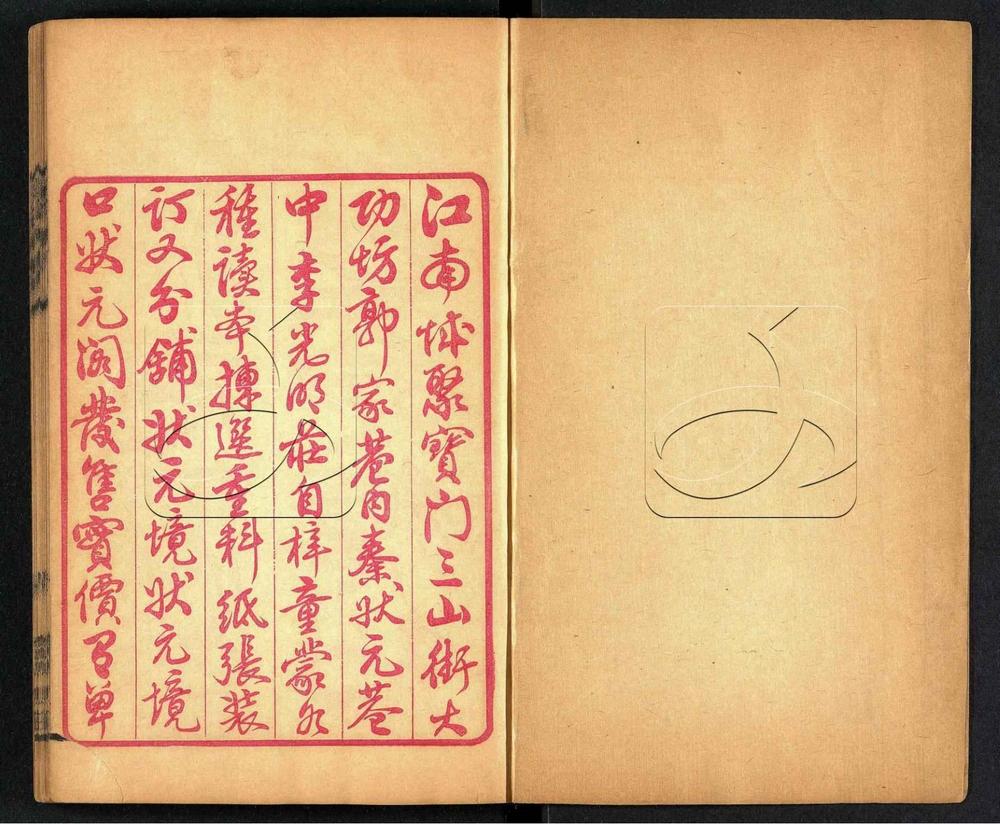 江南城聚寶門三山街大
功坊郭家巷內秦狀元巷
中李光明莊自梓童蒙各
種讀本揀選重料紙張裝
訂又分鋪狀元境狀元境
口狀元閣發售實價有單